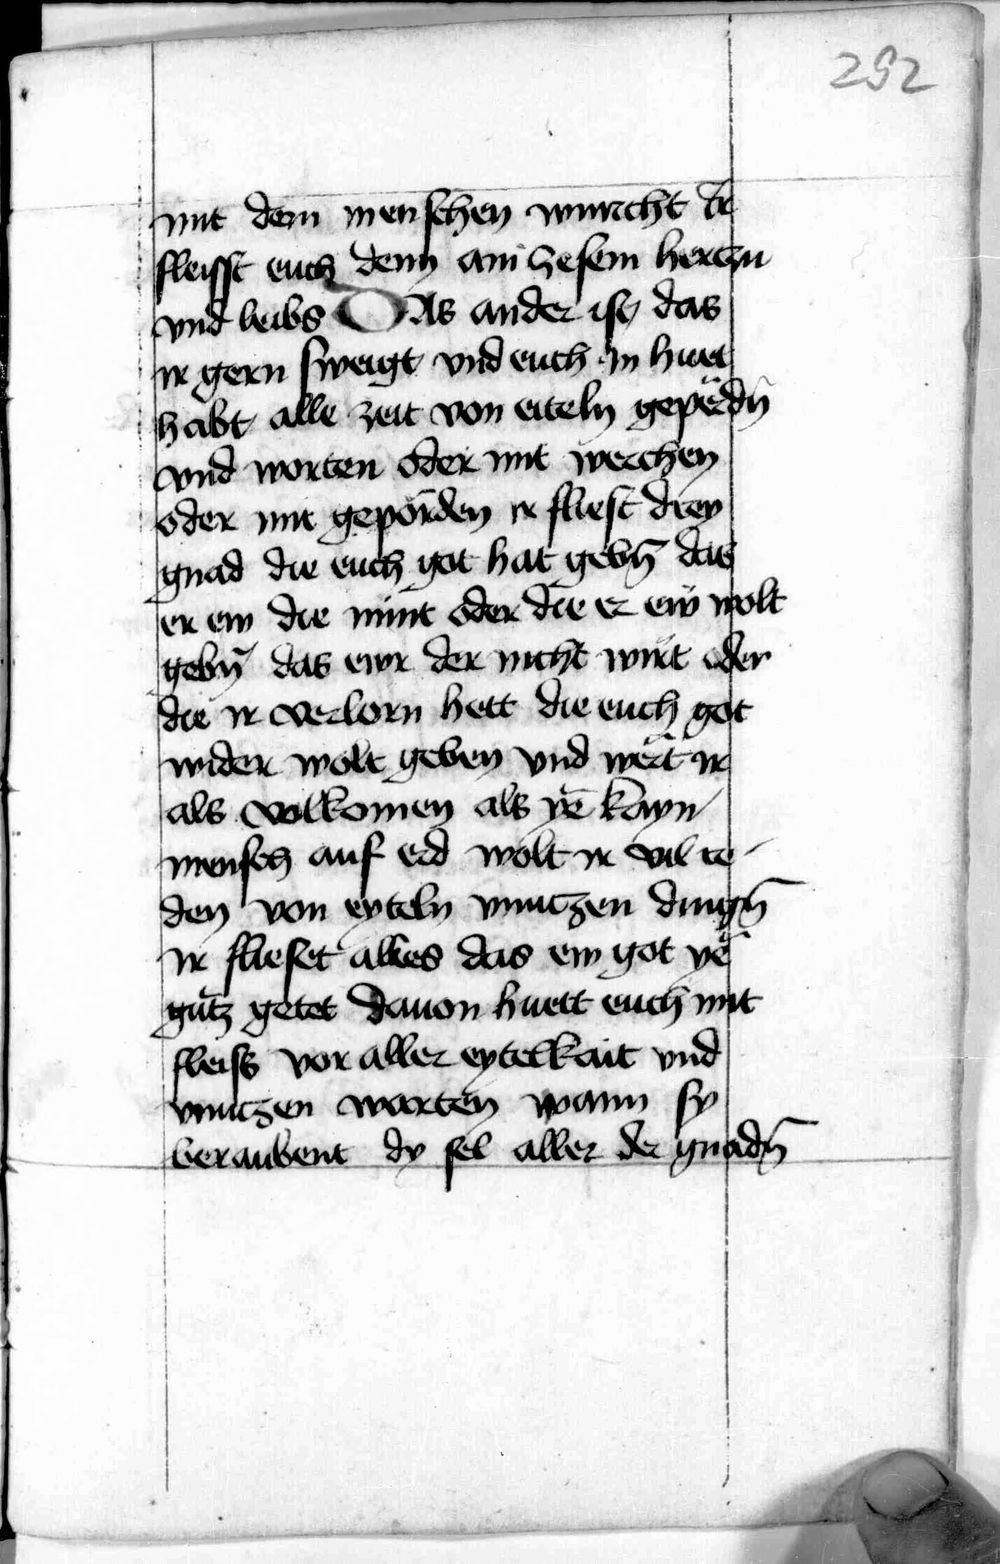 292
mit dem menschen wurcht Ir
fleisst euch denn ain hesem herczn
vnd leibs DAs ander ist das
ir gern sweigt vnd euch in huet
habt alle zeit von eiteln gepērdn̄
vnd worten oder mit werchen
oder mit geporden ir fliest drey
gnad die euch got hat gebn̄ das
er ew die nimt oder die er ew wolt
gebn̄ das ewr der nicht wirt oder
die ir verlorn hett die euch got
wider wolt geben vnd wert ir
als volkomen als ye kayn
mensch auf erd wolt ir vil re
den von eyteln vnnuczen dingn̄
ir flieset alles das ew got ye
gutz getet dauon huett euch mit
fleiss vor aller eytelkait vnd
vnnuczen worten wann sy
beraubent dy sel aller der gnadn̄